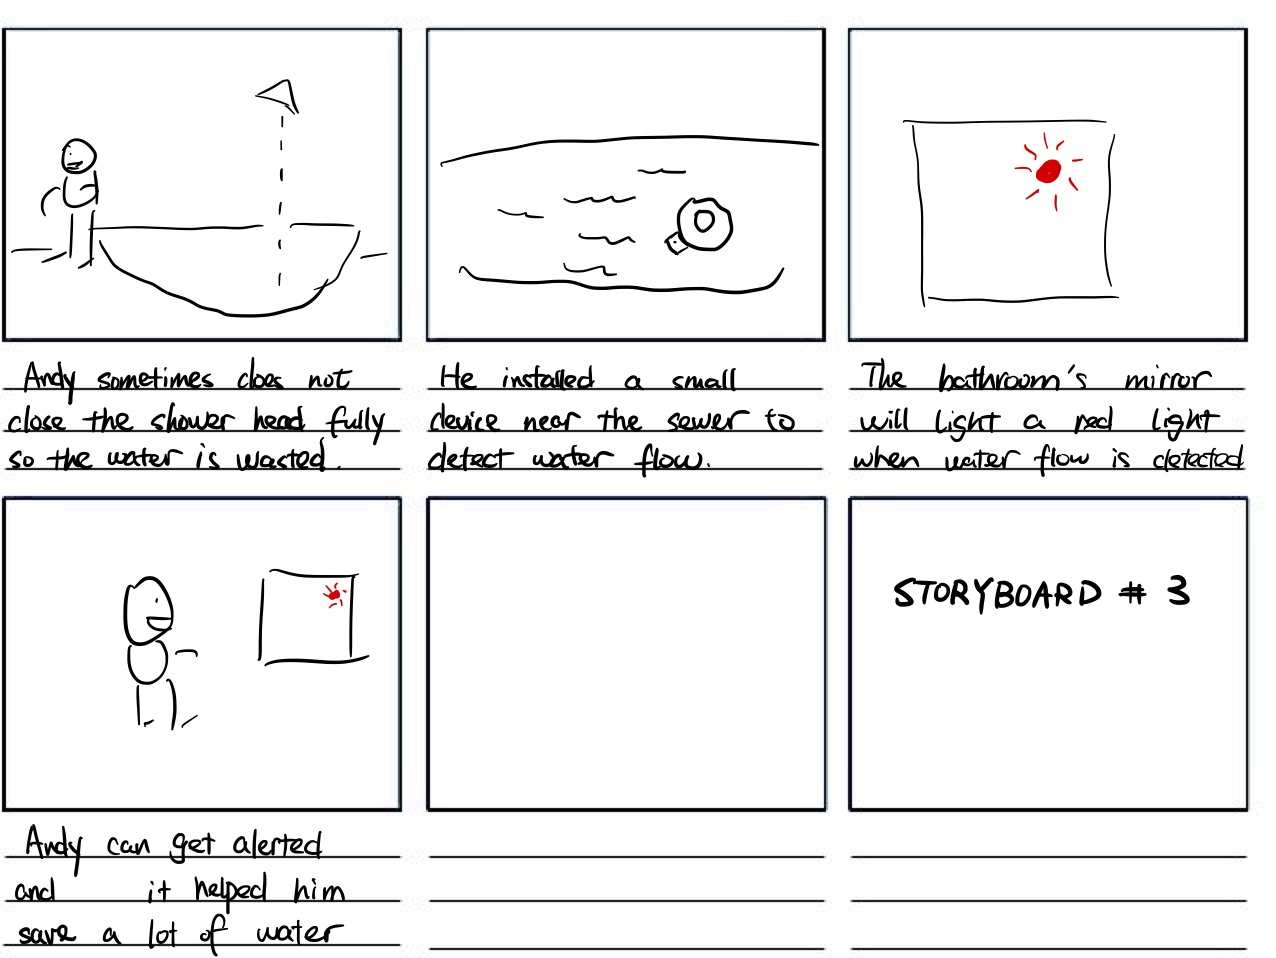 Andy sometimes does not
close the shower head fully
so the water is wasted.
He installed a small
device near the sewer to
detect water flow.
The bathroom's mirror
will light a red light
when water flow is detected
Andy can get alerted
and it helped him
save a lot of water
STORYBOARD # 3